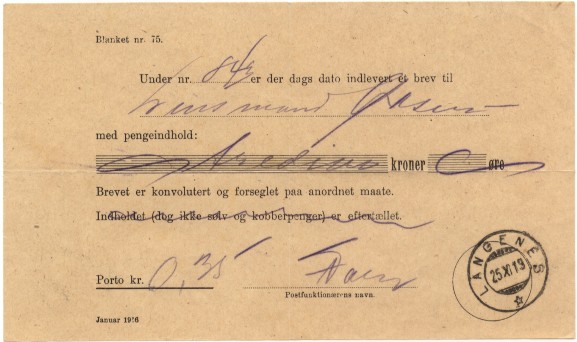 Blanket nr. 75.
Under nr. 843 er der dags dato indlevert et brev til
Lensmand
med pengeindhold:
kroner øre
Brevet er konvolutert og forseglet paa anordnet maate.
Indholdet (dog ikke sølv og kobberpenger) er eftertællet.
Porto kr. 0,35
Postfunktionærens navn.
Januar 1916
LANGENES
25 XI 19